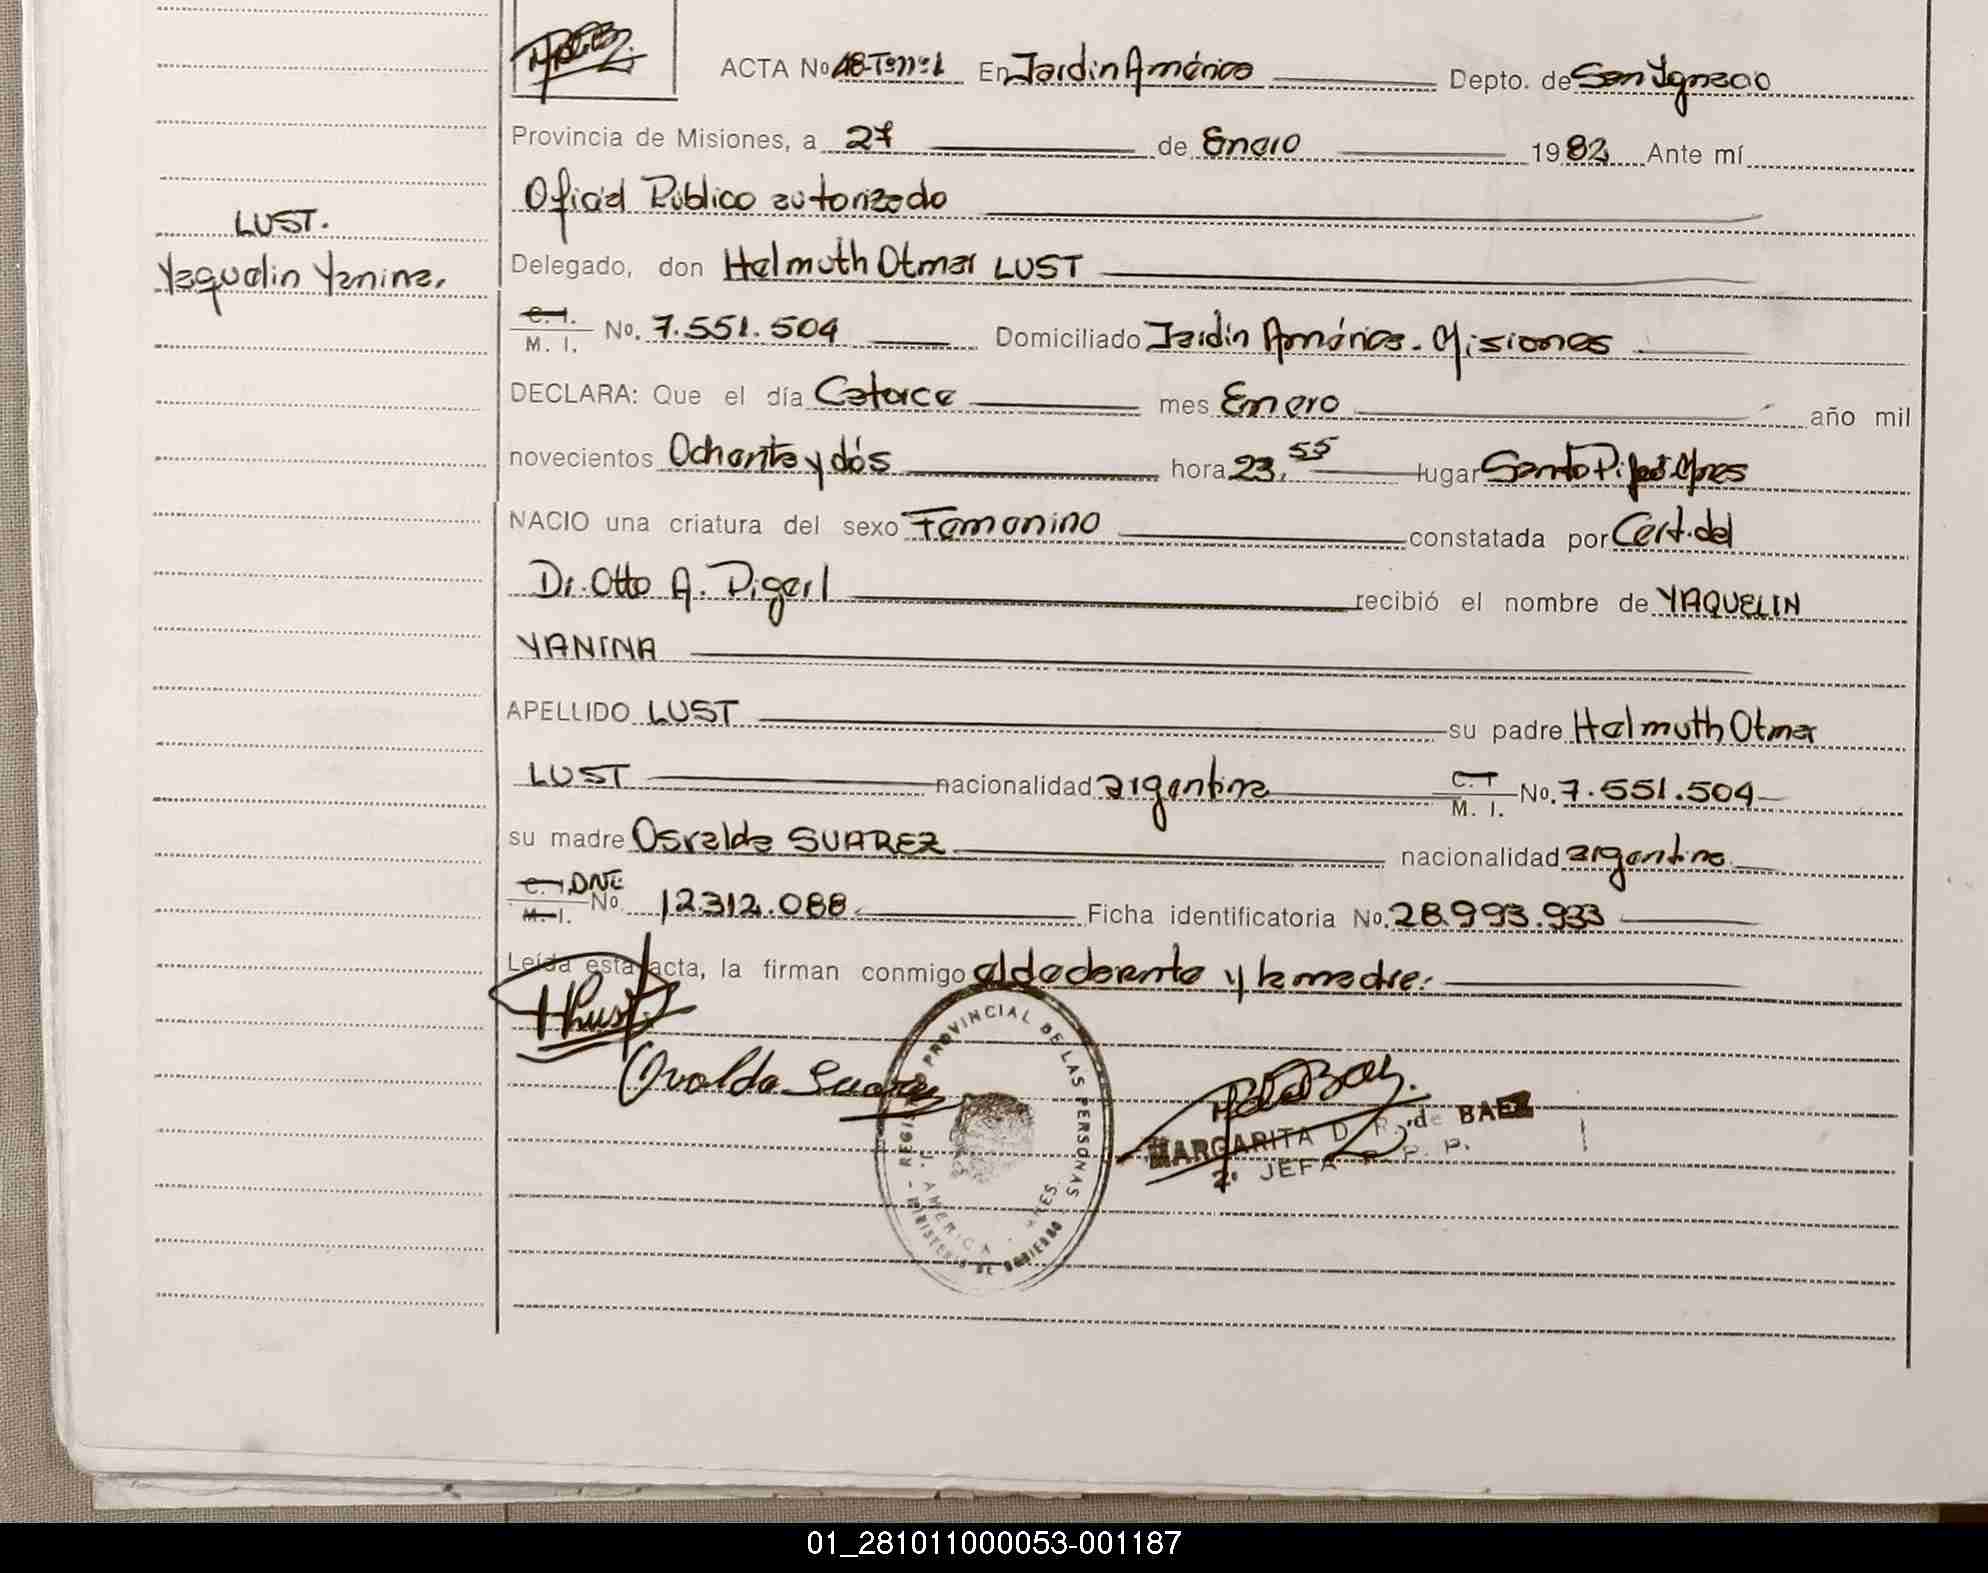 ACTA No 48-Tomo 1 En Jardin América Depto. de San Ygnacio
Provincia de Misiones, a 27 de Enero 1982 Ante mí
Oficial Público autorizado
LUST.
Yaquelin Yanina.
Delegado, don Helmuth Otmar LUST
C. I.
M. I. No. 7.551.504 Domiciliado Jardin América - Misiones
DECLARA: Que el día Catorce mes Enero año mil
novecientos Ochenta y dós hora 23,55 lugar Santo Pipó Mnes
NACIO una criatura del sexo Femenino constatada por Cert. del
Dr. Otto A. Digerl recibió el nombre de YAQUELIN
YANINA
APELLIDO LUST su padre Helmuth Otmar
LUST nacionalidad argentina C. I. M. I. No. 7.551.504
su madre Osvalda SUAREZ nacionalidad argentina
C. I. DNI
M. I. No. 12.312.088 Ficha identificatoria No. 28.993.933
Leída esta acta, la firman conmigo el declarante y la madre.
HLust
Osvalda Suarez
REGISTRO PROVINCIAL DE LAS PERSONAS
J. AMERICA
MINISTERIO DE GOBIERNO
MARGARITA D. R. de BAEZ
2º JEFA R. P. P.
01_281011000053-001187